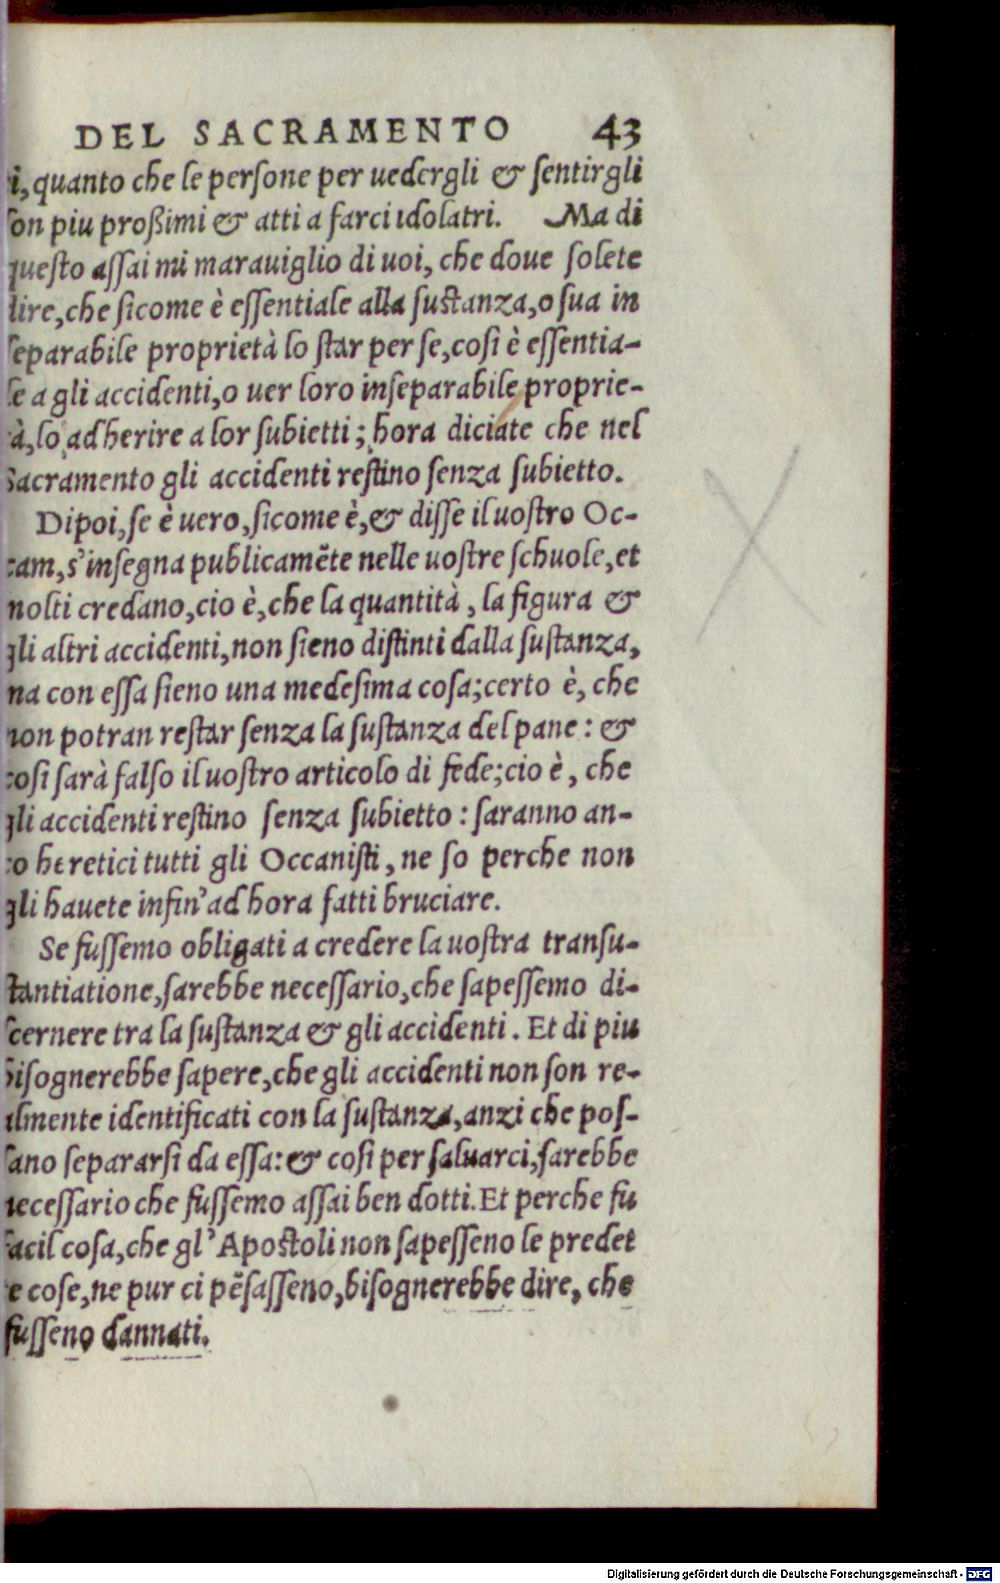 DEL SACRAMENTO 43
i, quanto che le persone per uedergli & sentirgli
son piu proßimi & atti a farci idolatri. Ma di
questo assai mi marauiglio di uoi, che doue solete
dire, che sicome è essentiale alla sustanza, o sua in
separabile proprietà lo star per se, cosi è essentia-
le a gli accidenti, o uer loro inseparabile proprie-
tà, lo adherire a lor subietti; hora diciate che nel
Sacramento gli accidenti restino senza subietto.
Dipoi, se è uero, sicome è, & disse il uostro Oc-
cam, s'insegna publicamẽte nelle uostre schuole, et
molti credano, cio è, che la quantità, la figura &
gli altri accidenti, non sieno distinti dalla sustanza,
ma con essa sieno una medesima cosa; certo è, che
non potran restar senza la sustanza del pane: &
cosi sarà falso il uostro articolo di fede; cio è, che
gli accidenti restino senza subietto: saranno an-
co heretici tutti gli Occanisti, ne so perche non
gli hauete infin'ad hora fatti bruciare.
Se fussemo obligati a credere la uostra transu-
stantiatione, sarebbe necessario, che sapessemo di-
scernere tra la sustanza & gli accidenti. Et di piu
bisognerebbe sapere, che gli accidenti non son re-
almente identificati con la sustanza, anzi che pos-
sano separarsi da essa: & cosi per saluarci, sarebbe
necessario che fussemo assai ben dotti. Et perche fu
facil cosa, che gl'Apostoli non sapesseno le predet
te cose, ne pur ci pẽsasseno, bisognerebbe dire, che
fusseno dannati.
Digitalisierung gefördert durch die Deutsche Forschungsgemeinschaft - DFG